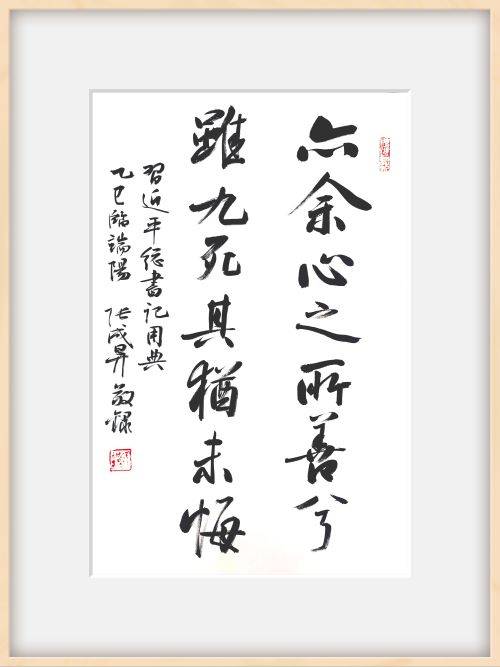 亦余心之所善兮
雖九死其猶未悔
習近平總書記用典
乙巳臨端陽 張成昇敬録